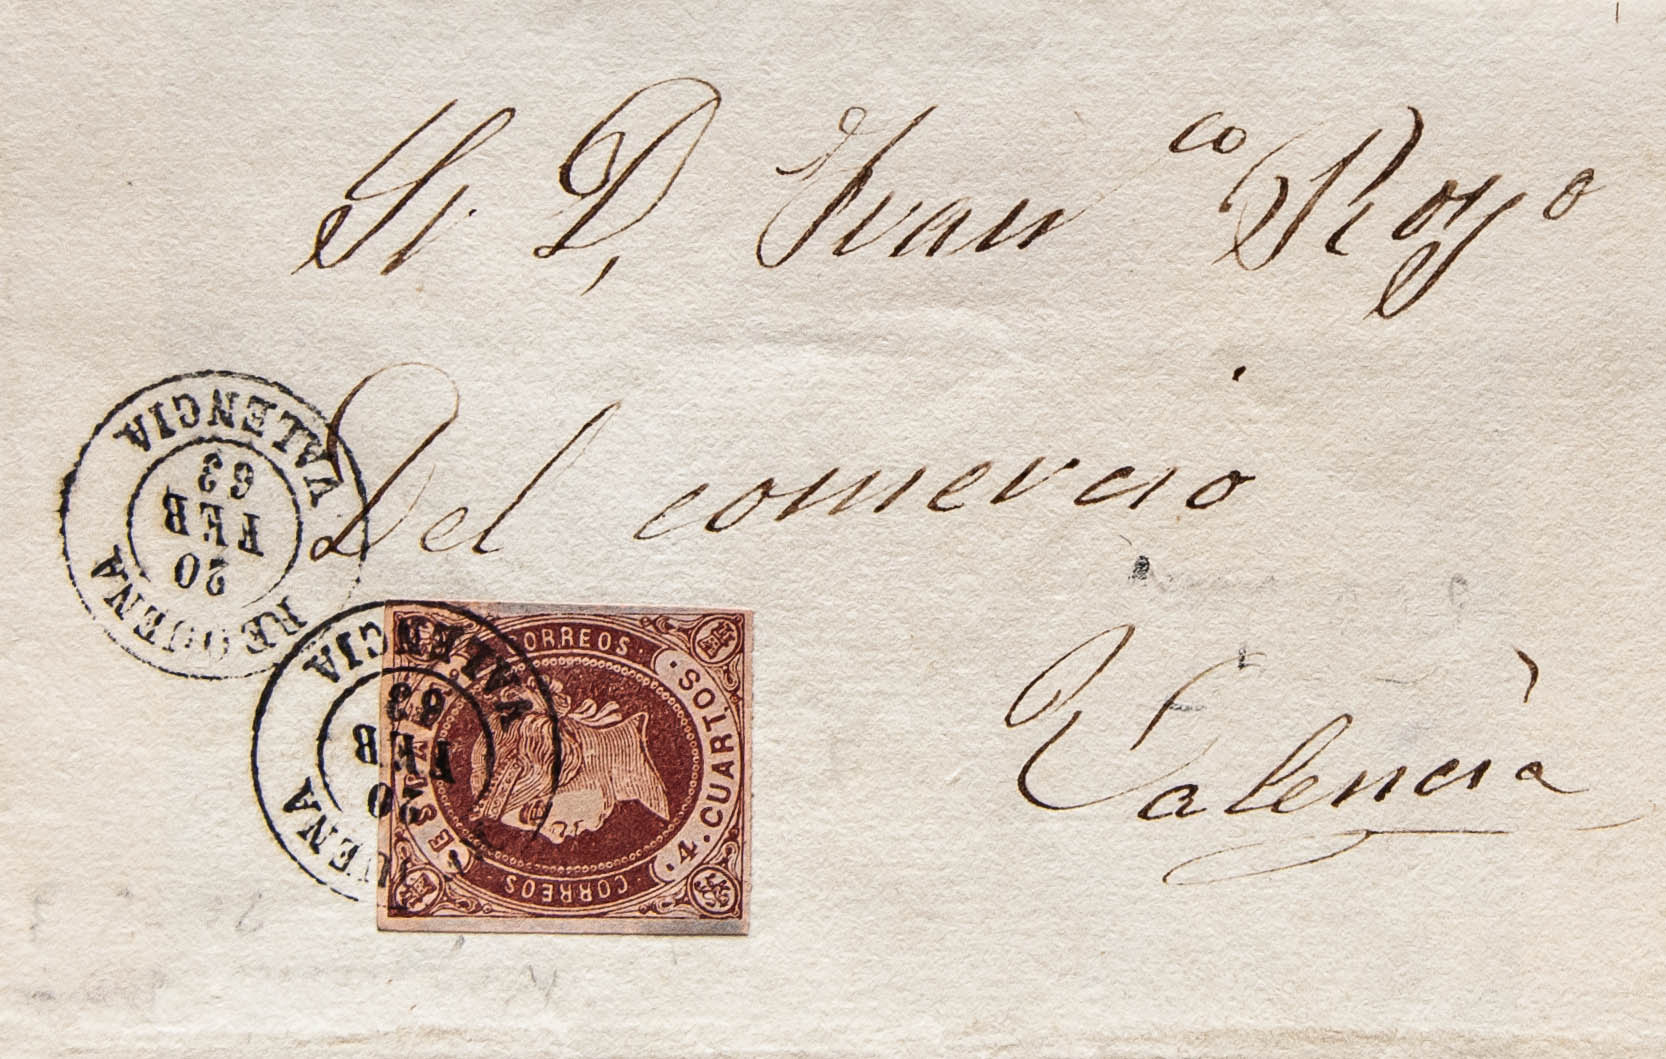 Sr. D, Fran^co Royo
Del comercio
Valencia
REQUENA
20
FEB
63
VALENCIA
REQUENA
20
FEB
63
VALENCIA
CORREOS
4 · CUARTOS
CORREOS